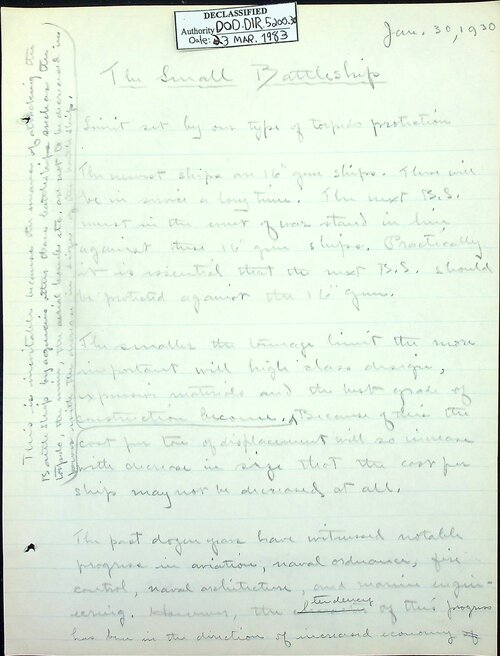 DECLASSIFIED
Authority DOD.DIR.5200.30
Date: 23 MAR. 1983
Jan. 30, 1930
The Small Battleship
Limit set by our type of torpedo protection
The newest ships are 16" gun ships. These will
be in service a long time. The next B.S.
must in the event of war stand in line
against these 16" gun ships. Practically
it is essential that the next B.S. should
be protected against the 16" gun.
The smaller the tonnage limit the more
important will high class design,
expensive materials and the best grade of
construction become. Because of this the
cost per ton of displacement will so increase
with decrease in size that the cost per
ship may not be decreased at all.
The past dozen years have witnessed notable
progress in aviation, naval ordnance, fire
control, naval architecture, and marine engin-
eering. However, the tendency of this progress
has been in the direction of increased economy of
This is inevitable because the means of attacking the
Battleship by agencies other than battleships such as the
torpedo, the mine, the aerial bomb etc. are not to be decreased in